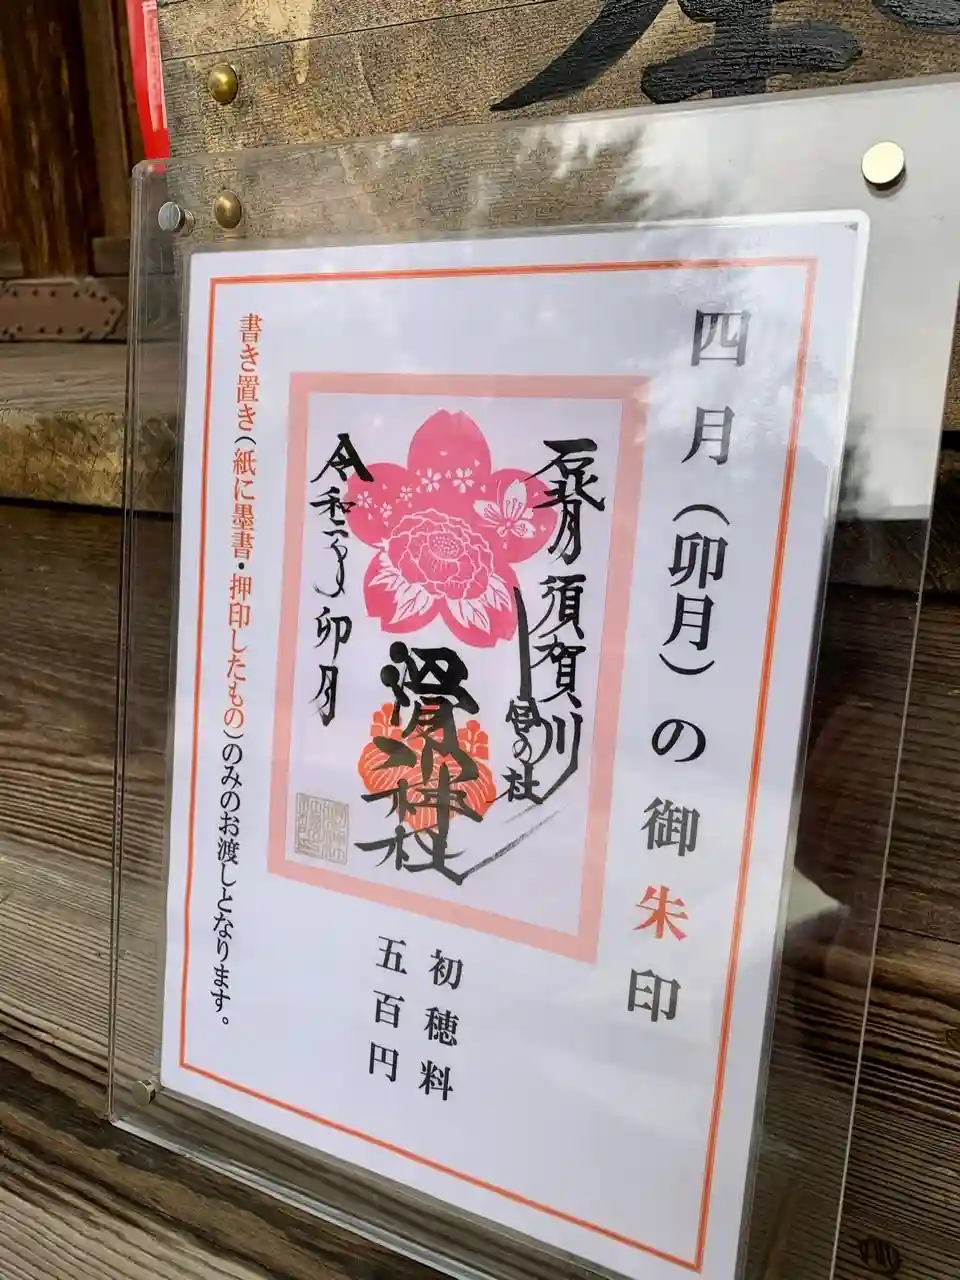 四月(卯月)の御朱印
石背 須賀川
宮の杜
滑川神社
令和二年 卯月
初穂料
五百円
書き置き(紙に墨書・押印したもの)のみのお渡しとなります。